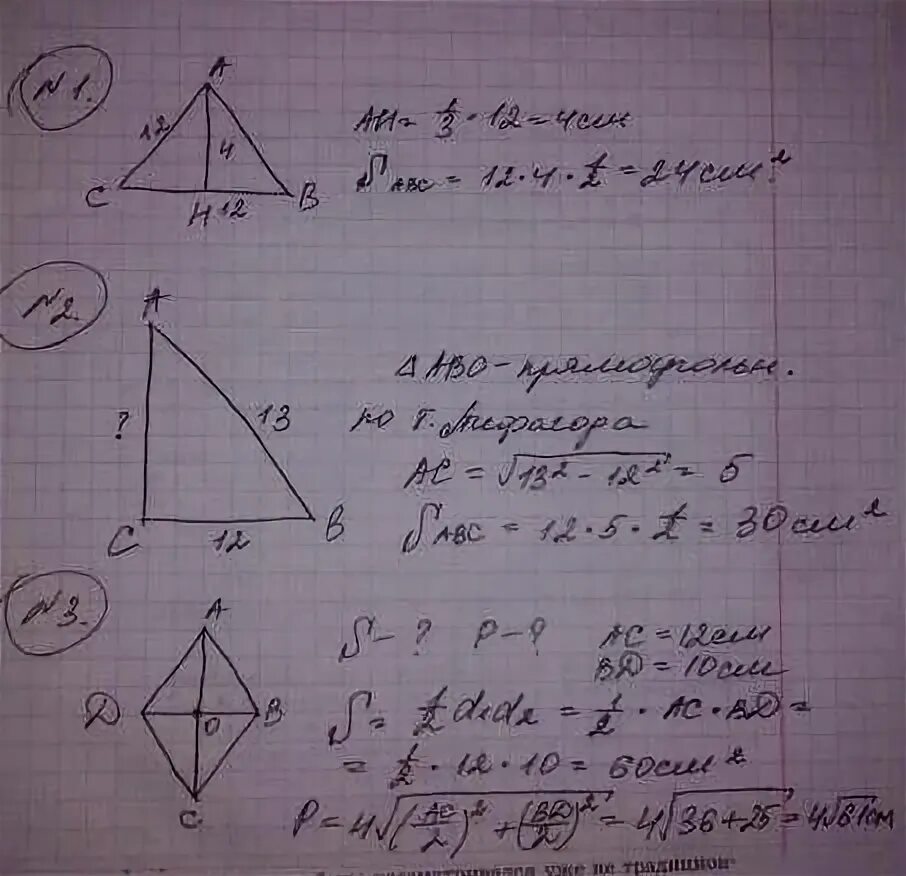 N1.
A
12
4
C
H 12
B
AH = 1/3 · 12 = 4 см
S ABC = 12 · 4 · 1/2 = 24 см²
N2.
A
?
13
C
12
B
Δ ABC - прямоугольн.
по т. Пифагора
AC = √13² - 12² = 5
S ABC = 12 · 5 · 1/2 = 30 см²
N3.
A
D
O
B
C
S - ? P - ? AC = 12 см
BD = 10 см
S = 1/2 d₁d₂ = 1/2 · AC · BD =
= 1/2 · 12 · 10 = 60 см²
P = 4√(AC/2)² + (BD/2)² = 4√36 + 25 = 4√61 см
уже не традицион-